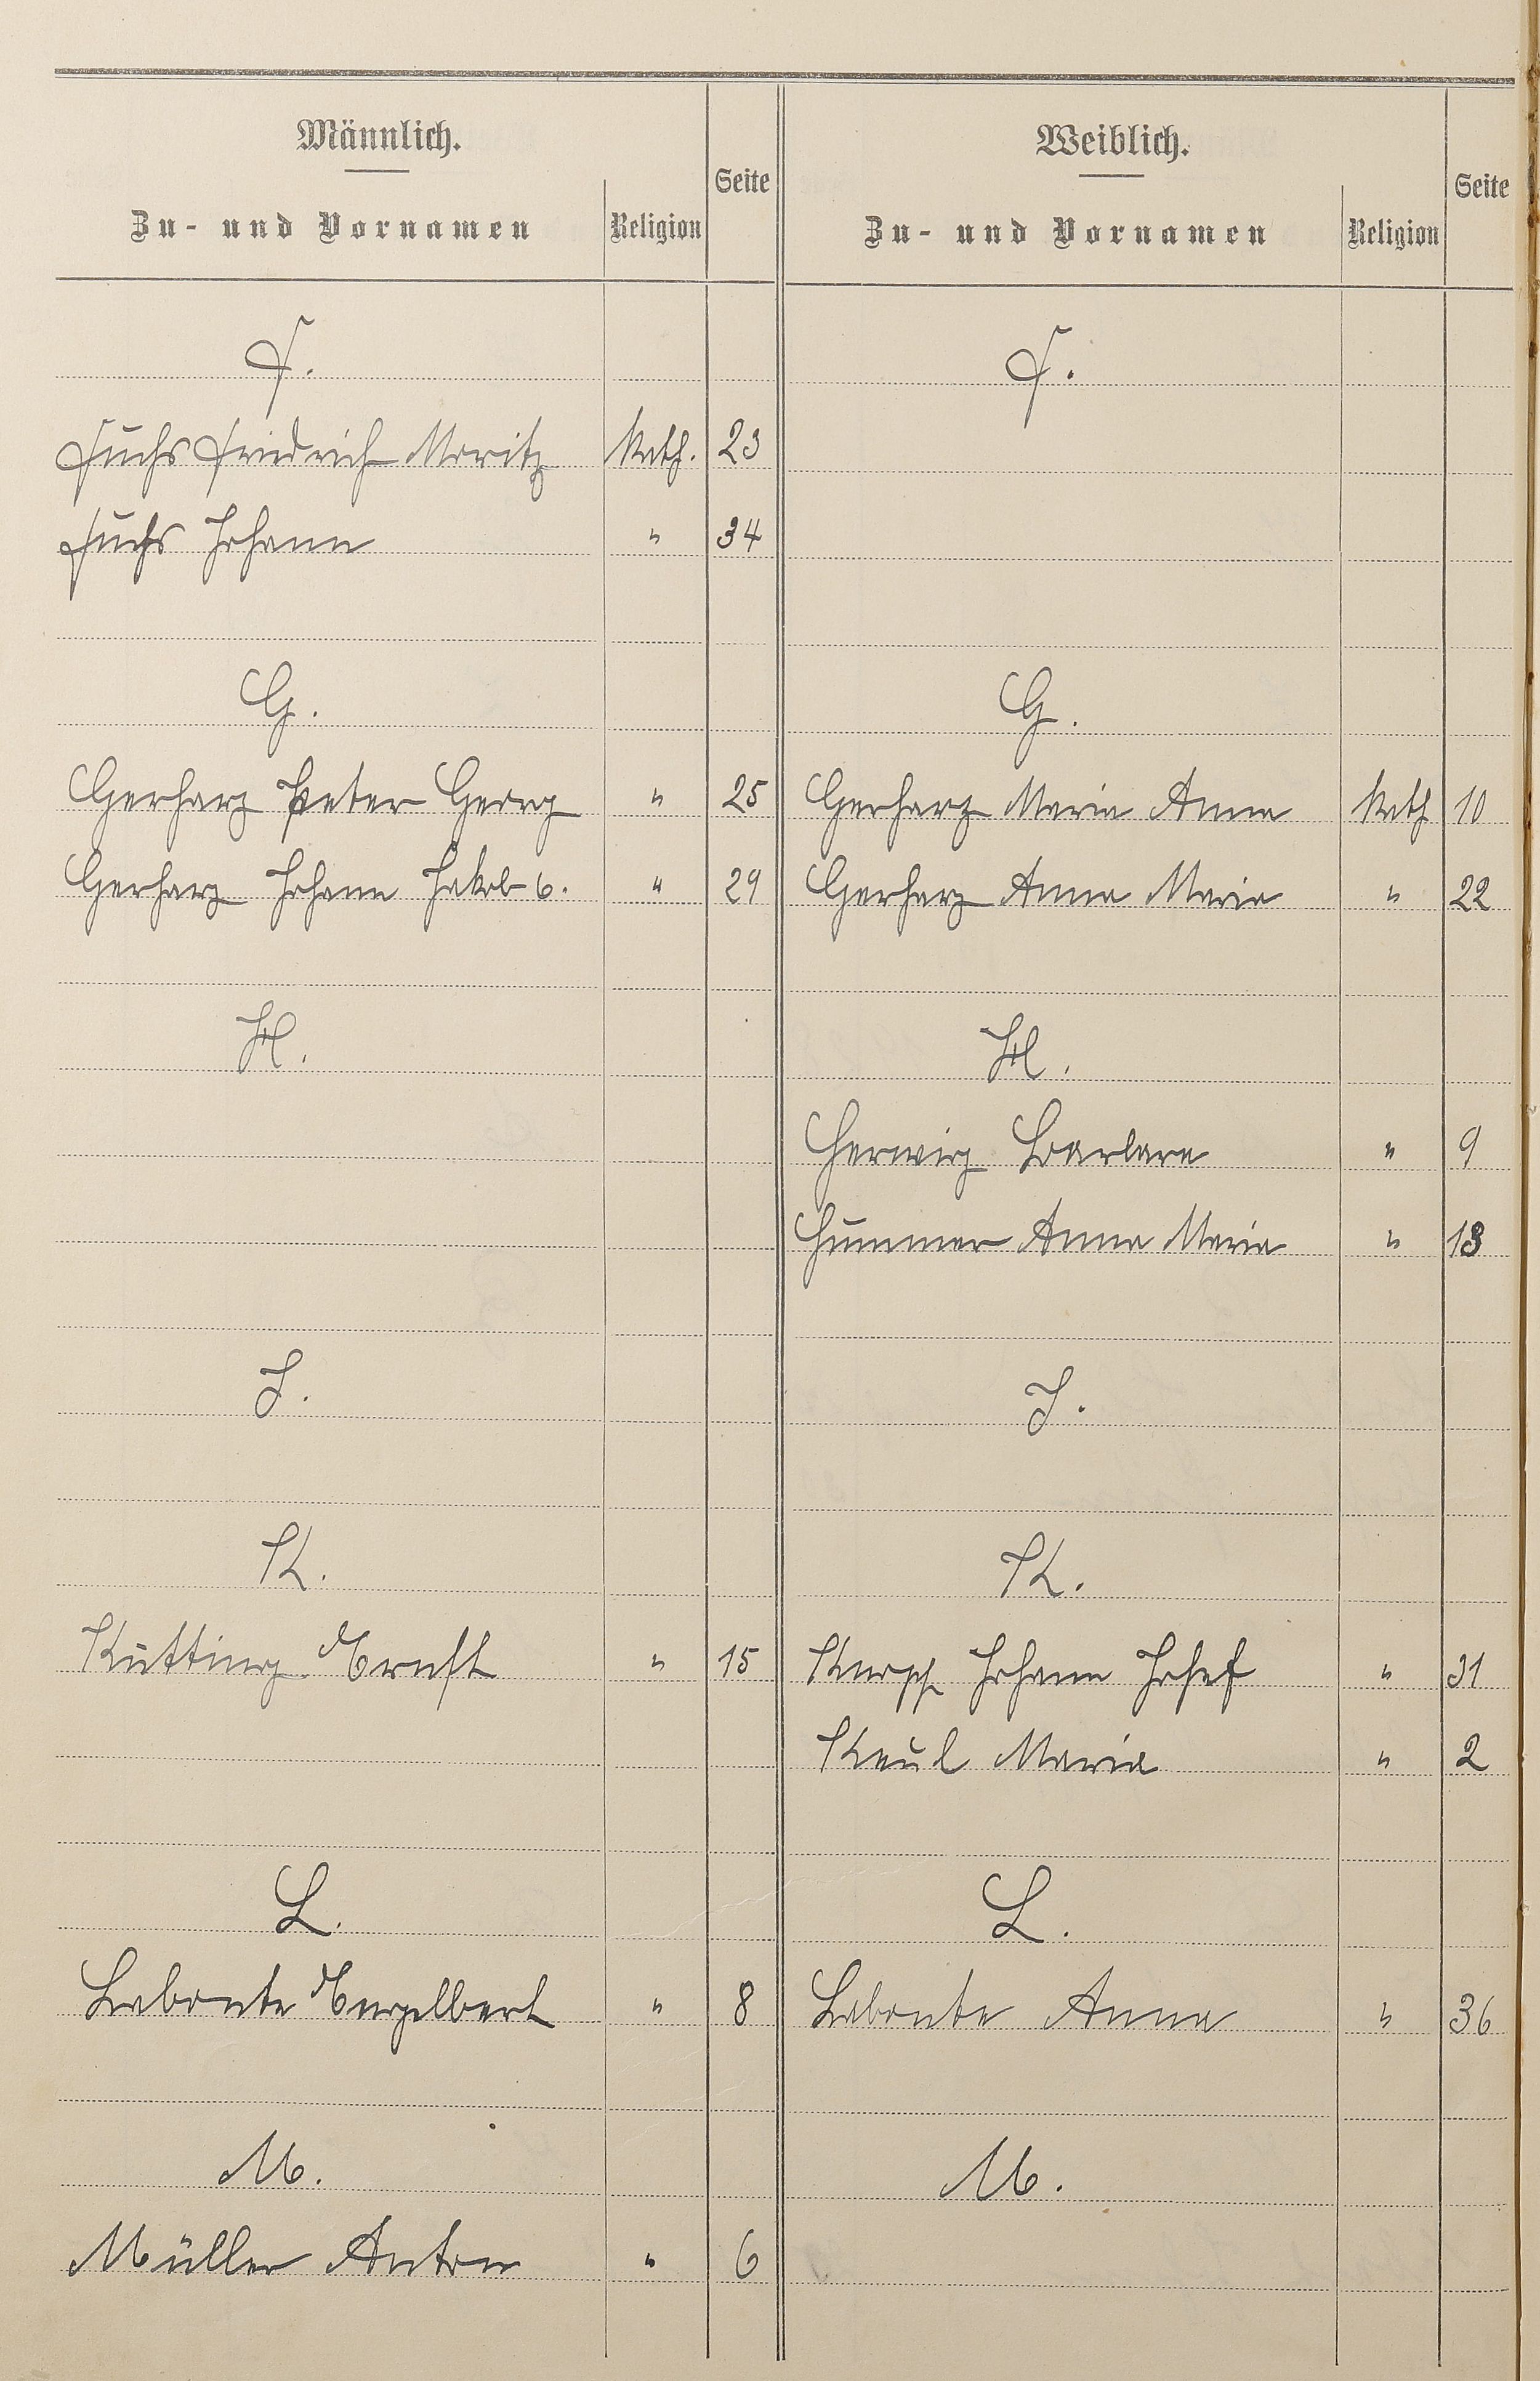 Männlich.
Zu- und Vornamen Religion Seite
F.
Fuchs Friedrich Moritz Kath. 23
Fuchs Johann " 34
G.
Gerharz Peter Georg " 25
Gerharz Johann Jakob 6. " 29
H.
J.
K.
Kutting Ernst " 15
L.
Labonte Engelbert " 8
M.
Müller Anton " 6
Weiblich.
Zu- und Vornamen Religion Seite
F.
G.
Gerharz Maria Anna Kath 10
Gerharz Anna Maria " 22
H.
Herwig Barbara " 9
Hummer Anna Maria " 13
J.
K.
Knopp Johann Josef " 31
Keul Maria " 2
L.
Labonte Anna " 36
M.